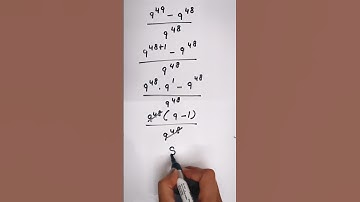 9⁴⁹ - 9⁴⁸
9⁴⁸
9⁴⁸⁺¹ - 9⁴⁸
9⁴⁸
9⁴⁸ · 9¹ - 9⁴⁸
9⁴⁸
9⁴⁸ (9 - 1)
9⁴⁸